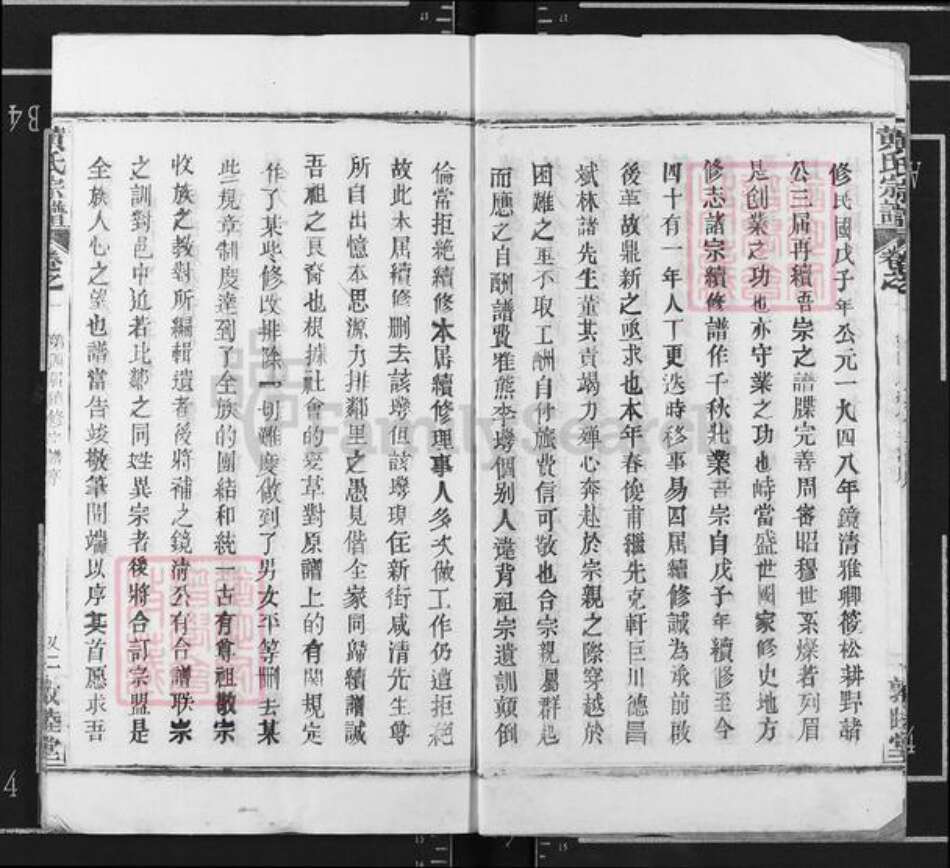 黃氏宗譜
卷之
修民國戊子年公元一九四八年鏡清雅卿筱松耕野諸
公三屆再續吾宗之譜牒完善周審昭穆世系燦若列眉
是創業之功也亦守業之功也時當盛世國家修史地方
修志諸宗續修譜作千秋壯業吾宗自戊子年續修至今
四十有一年人丁更迭時移事易四屆續修誠為承前啟
後革故鼎新之亟求也本年春俊甫繼先克軒巨川德昌
斌林諸先生董其責竭力殫心奔赴於宗親之際穿越於
困難之重不取工酬自付旅費信可敬也合宗親屬群起
而應之自酬譜費雅熊李塆個別人違背祖宗遺訓顛倒
倫常拒絕續修本屆續修理事人多次做工作仍遭拒絕
故此本屆續修刪去該塆但該塆現住新街咸清先生尊
所自出憶本思源力排鄰里之愚見偕全家同歸續譜誠
吾祖之良裔也根據社會的變革對原譜上的有關規定
作了某些修改排除一切難度做到了男女平等刪去某
些規章制度達到了全族的團結和統一古有尊祖敬宗
收族之教對所編輯遺者後將補之鏡清公有合譜聯宗
之訓對邑中近若比鄰之同姓異宗者後將合訂宗盟是
全族人心之望也譜當告竣敬筆開端以序其首愿求吾
黃氏宗譜
卷之一
第四屆續修宗譜序
又二
敦睦堂
敦睦堂
FamilySearch
B4
4